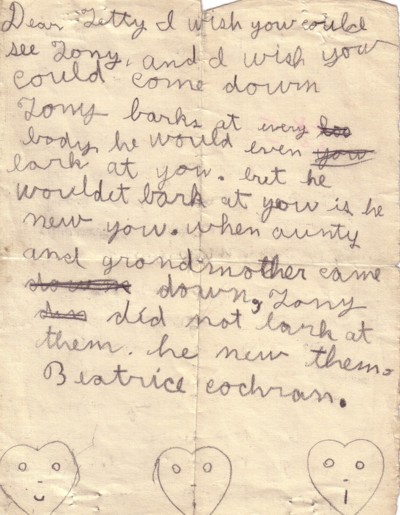 Dear Letty I wish you could
see Tony, and I wish you
could come down
Tony barks at every boo
body, he would even you
bark at you. but he
wouldet bark at you is he
new you. when aunty
and grandmother came
down, Tony
did not bark at
them. he new them.
Beatrice cochran.